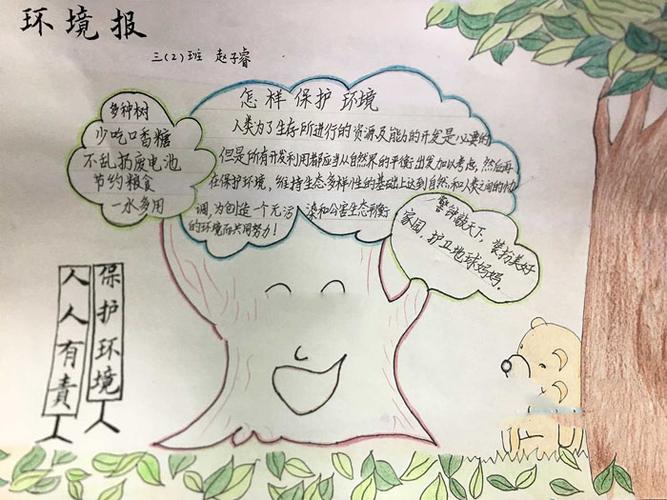 环境报
三(2)班 赵子睿
多种树
少吃口香糖
不乱扔废电池
节约粮食
一水多用
怎样保护环境
人类为了生存所进行的资源及能力的开发是必要的
但是所有开发利用都应当从自然界的平衡出发加以考虑,然后再
在保护环境,维持生态多样性的基础上达到自然和人类之间的协
调,为创造一个无污染和公害生态平衡
的环境而共同努力!
警钟敲天下,装扮美好
家园,护卫地球妈妈.
保护环境
人人有责